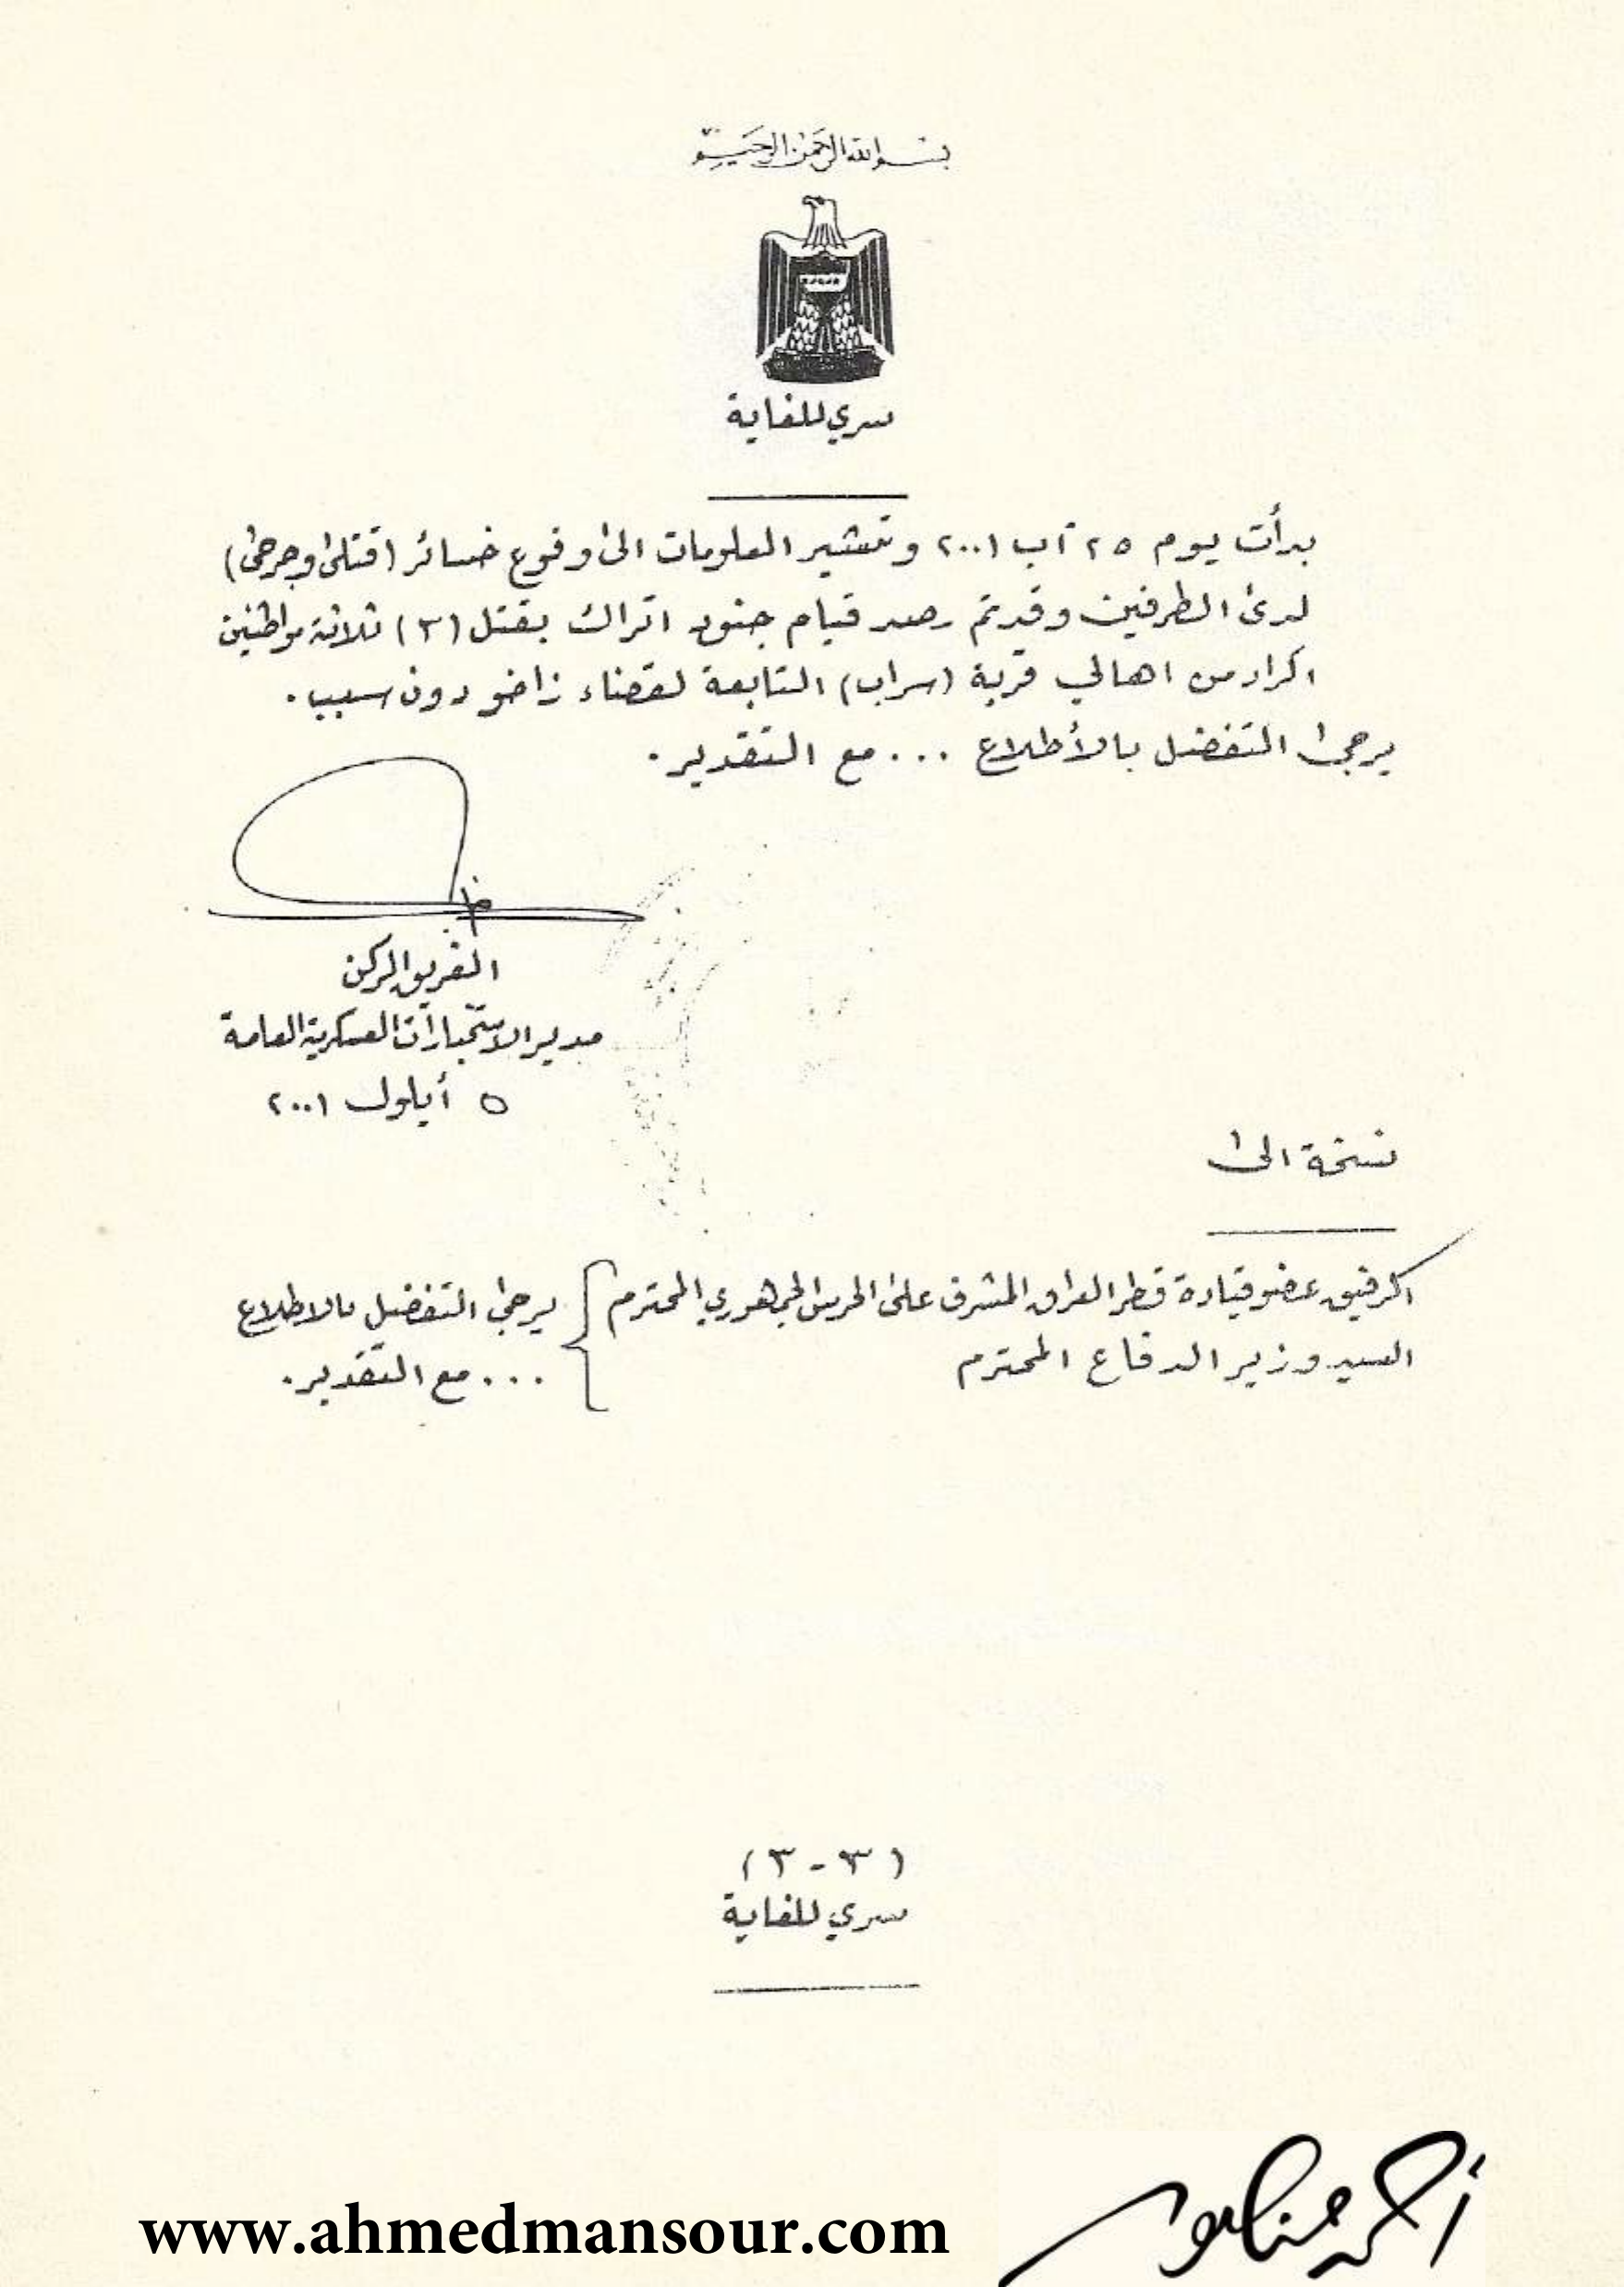 بسم الله الرحمن الرحيم
سري للغاية
بدأت يوم ٢٥ آب ٢٠٠١ وتشير المعلومات الى وقوع خسائر (قتلى وجرحى)
لدى الطرفين وقد تم رصد قيام جنود اتراك بقتل (٣) ثلاثة مواطنين
اكراد من اهالي قرية (سراب) التابعة لقضاء زاخو دون سبب.
يرجى التفضل بالأطلاع ... مع التقدير.
الفريق الركن
مدير الاستخبارات العسكرية العامة
٥ أيلول ٢٠٠١
نسخة الى
الرفيق عضو قيادة قطر العراق المشرف على الحرس الجمهوري المحترم
السيد وزير الدفاع المحترم
يرجى التفضل بالاطلاع
... مع التقدير.
(٣-٣)
سري للغاية
www.ahmedmansour.com
أحمد منصور